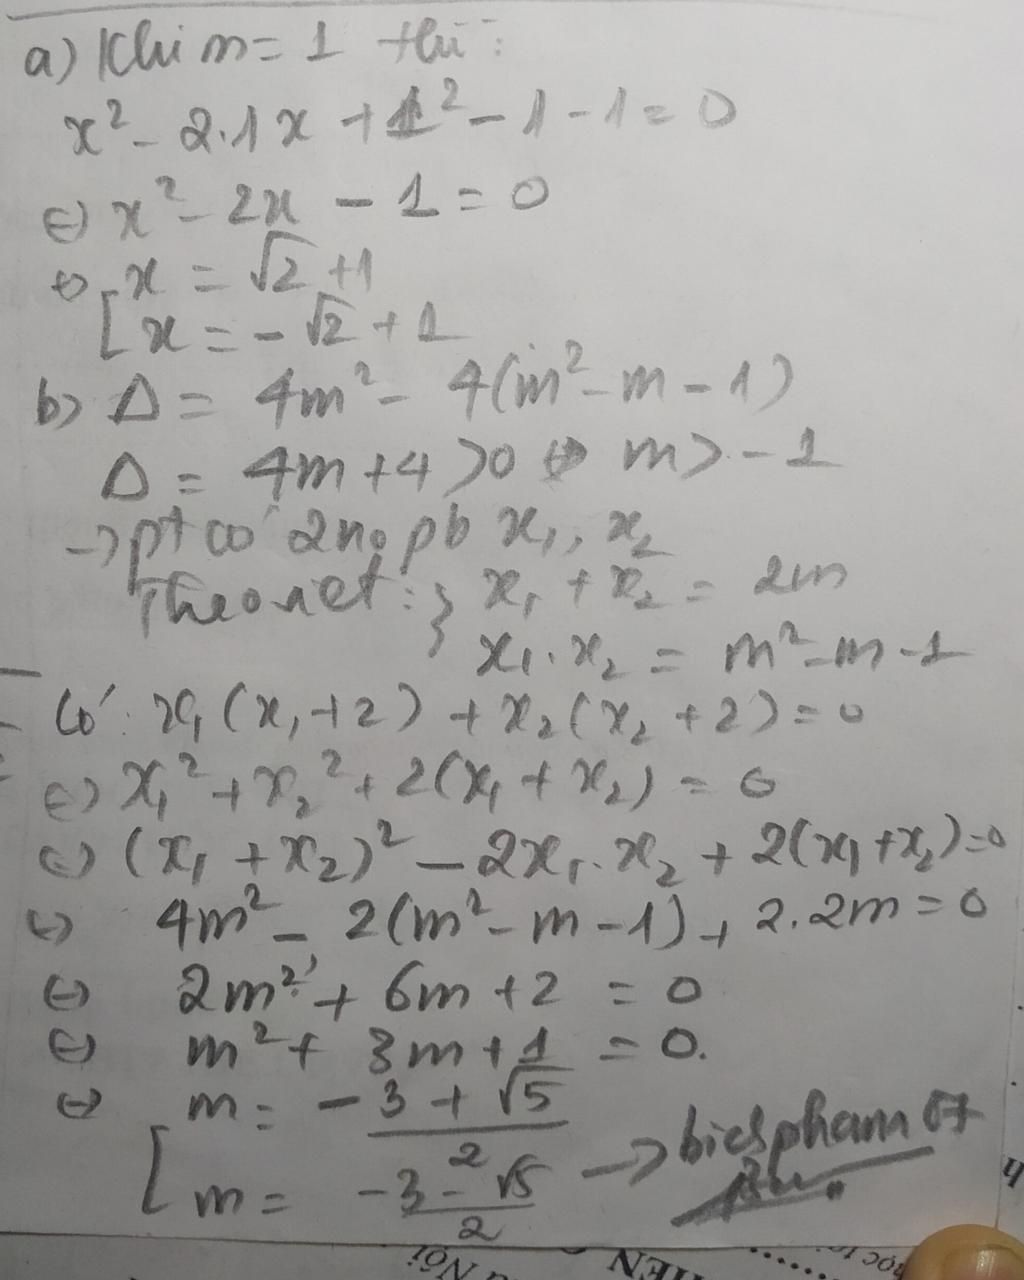 a) Khi m = 1 thì:
x² - 2.1x + 1² - 1 - 1 = 0
(=) x² - 2x - 1 = 0
(=) [ x = √2 + 1
x = -√2 + 1
b) Δ = 4m² - 4(m² - m - 1)
Δ = 4m + 4 > 0 (=) m > -1
-> pt có 2 no pb x₁, x₂
Theo vet: } x₁ + x₂ = 2m
x₁ . x₂ = m² - m - 1
Có: x₁(x₁ + 2) + x₂(x₂ + 2) = 0
(=) x₁² + x₂² + 2(x₁ + x₂) = 0
(=) (x₁ + x₂)² - 2x₁ . x₂ + 2(x₁ + x₂) = 0
(=) 4m² - 2(m² - m - 1) + 2.2m = 0
(=) 2m² + 6m + 2 = 0
(=) m² + 3m + 1 = 0.
(=) [ m = (-3 + √5)/2
m = (-3 - √5)/2 -> bichpham07
NỘI